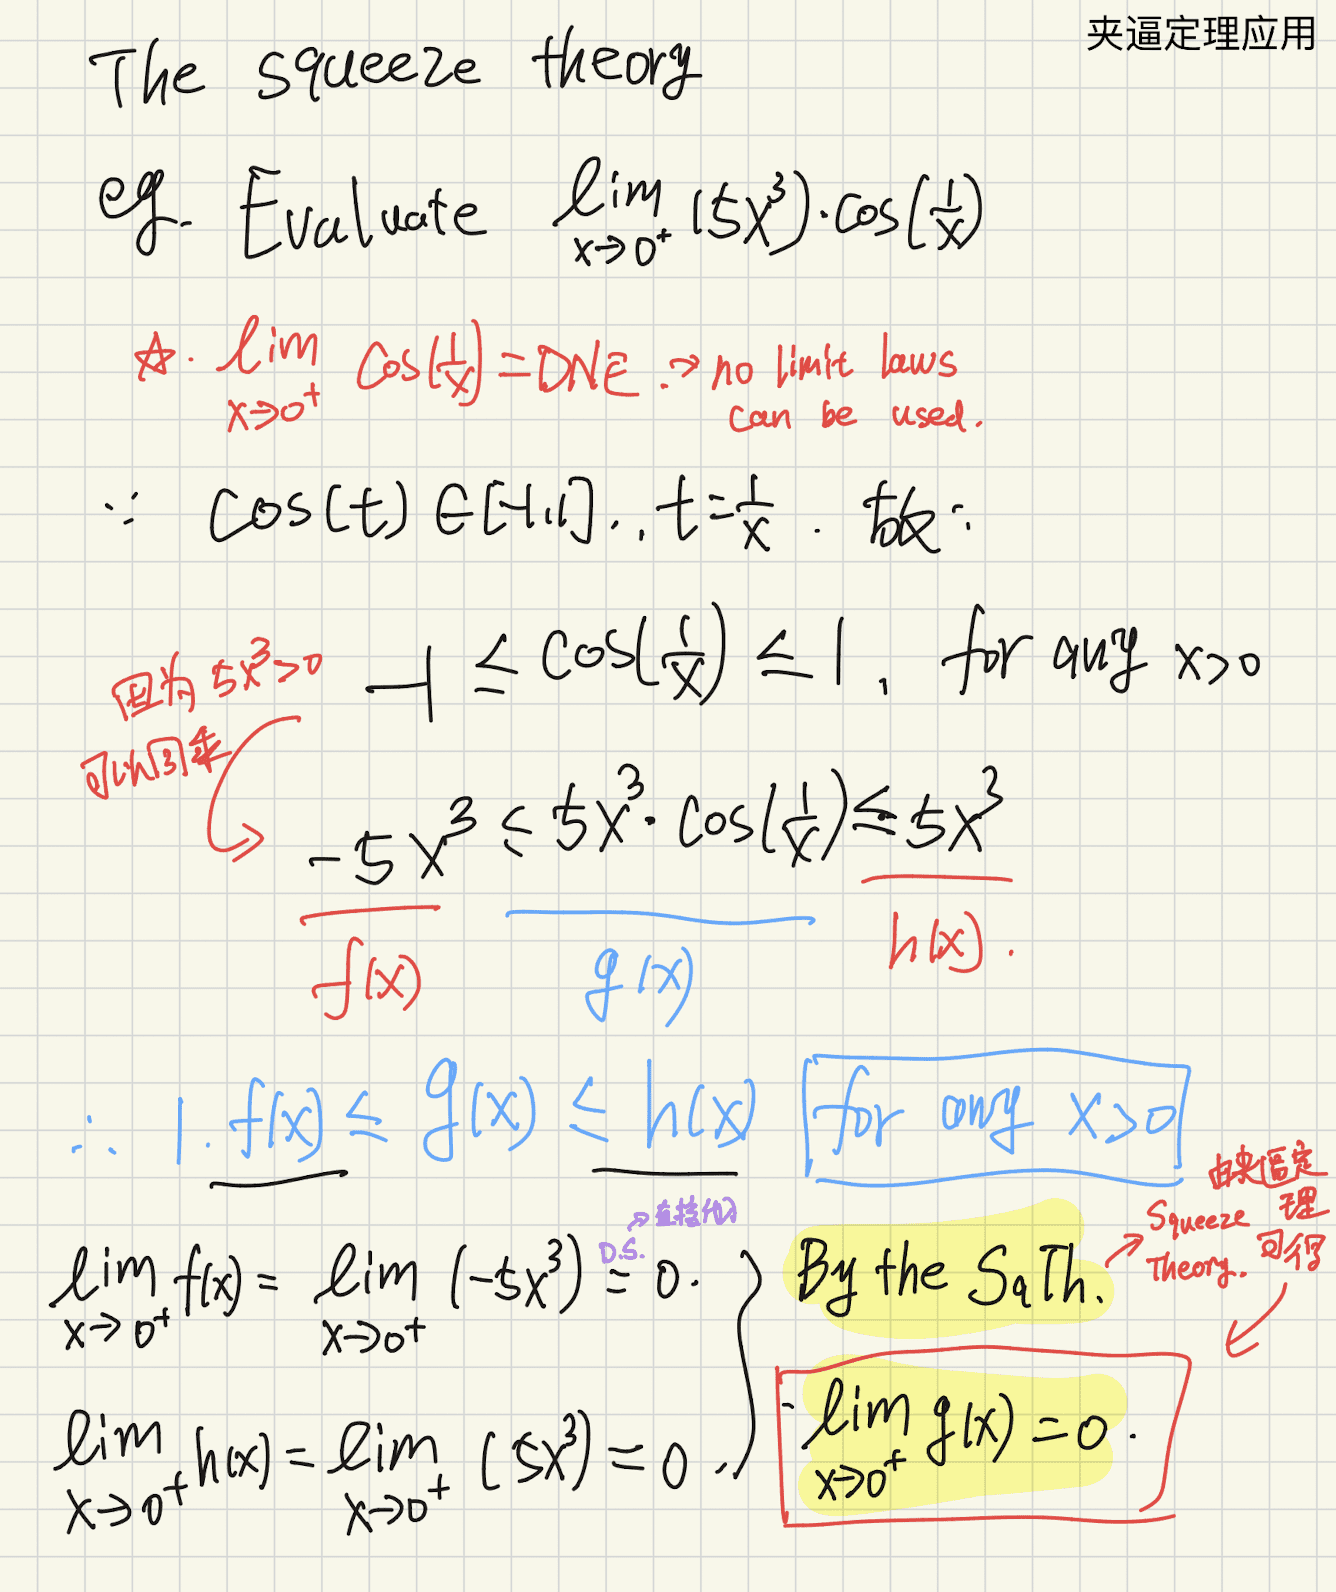 夹逼定理应用
The squeeze theory
eg. Evaluate lim x→0⁺ (5x³)·cos(1/x)
☆. lim x→0⁺ cos(1/x) = DNE. → no limit laws
can be used.
∵ cos(t) ∈ [-1,1]., t = 1/x . 故:
-1 ≤ cos(1/x) ≤ 1, for any x>0
因为 5x³>0
可以同乘
-5x³ ≤ 5x³·cos(1/x) ≤ 5x³
f(x) g(x) h(x).
∴ 1. f(x) ≤ g(x) ≤ h(x) for any x>0
D.S. → 直接代入
lim x→0⁺ f(x) = lim x→0⁺ (-5x³) = 0.
lim x→0⁺ h(x) = lim x→0⁺ (5x³) = 0.
By the SqTh.
→ Squeeze Theory.
由夹逼定理可得
lim x→0⁺ g(x) = 0.